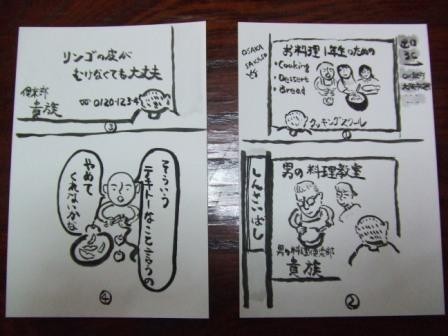 お料理1年生のための
・Cooking
・Dessert
・Bread
クッキングスクール
①
OSAKA
出口
しんさいばし
男の料理教室
男の料理倶楽部
貴族
②
リンゴの皮が
むけなくても大丈夫
倶楽部
貴族
☎0120-1234
③
そういう
テキトーなこと言うの
やめて
くれないかな
④